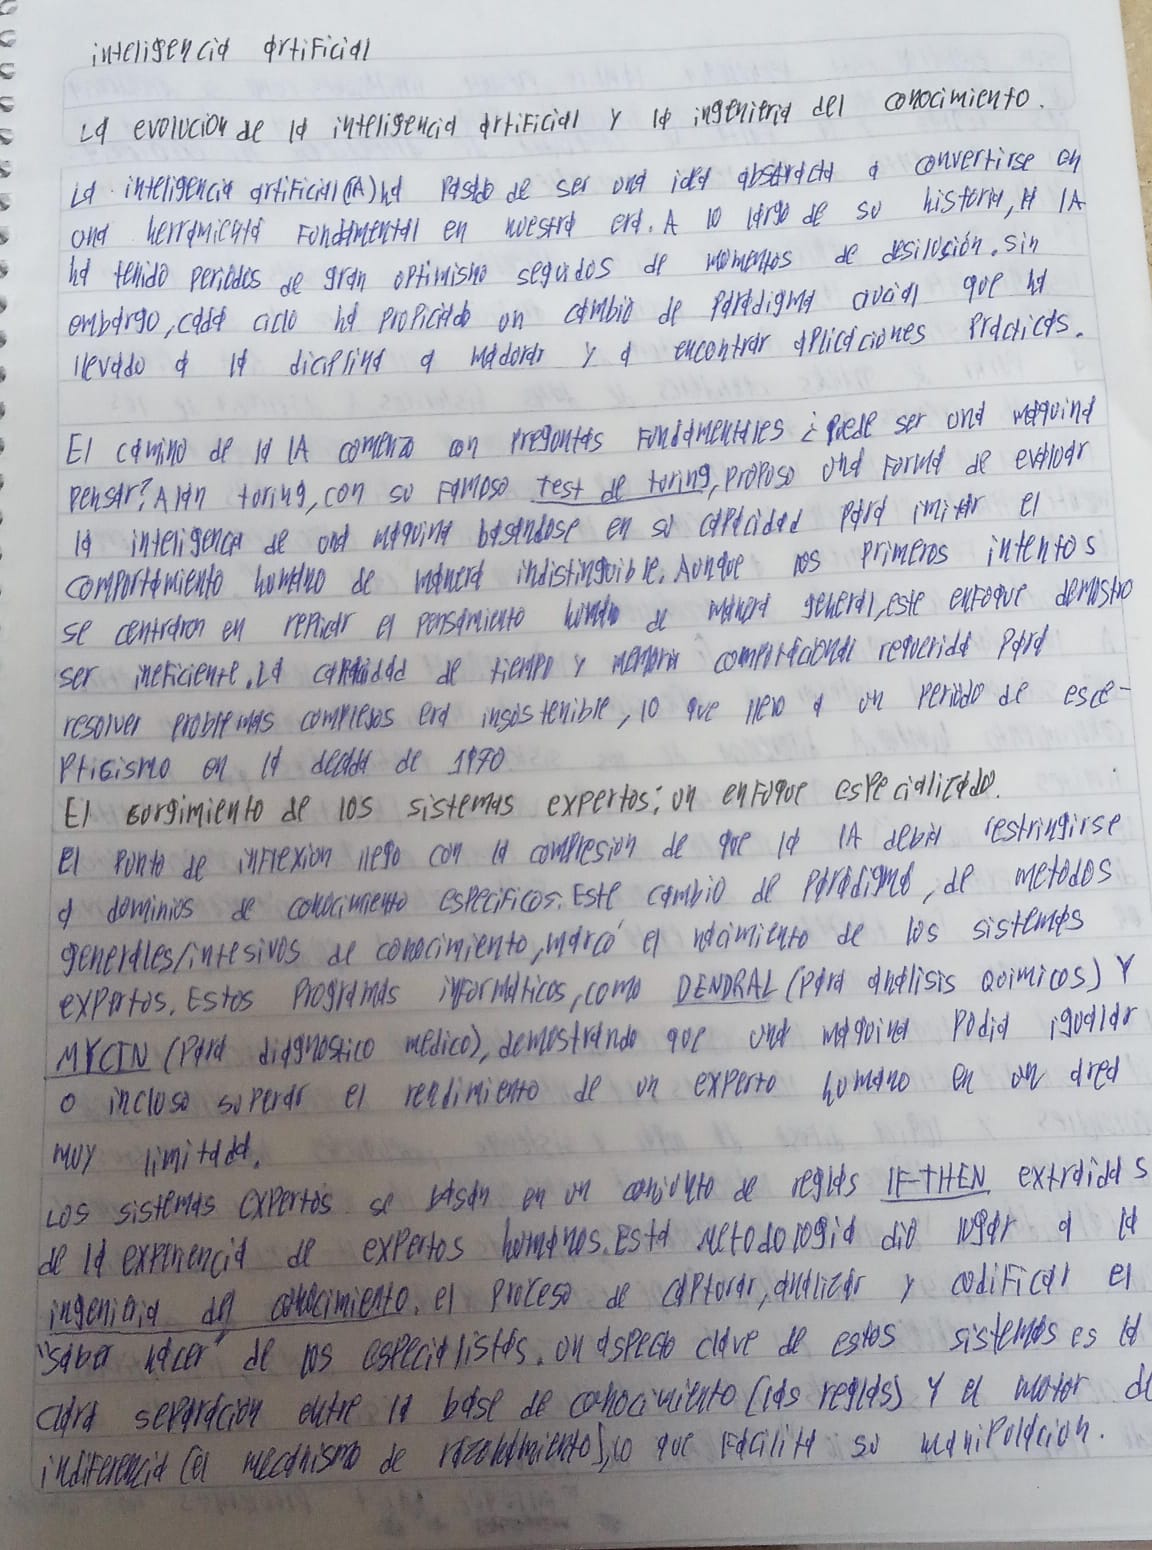 inteligencia artificial
La evolucion de la inteligencia artificial y la ingenieria del conocimiento.
La inteligencia artificial (IA) ha pasado de ser una idea abstracta a convertirse en
una herramienta fundamental en nuestra era. A lo largo de su historia, la IA
ha tenido periodos de gran optimismo seguidos de momentos de desilusión. Sin
embargo, cada ciclo ha propiciado un cambio de paradigma crucial que ha
llevado a la diciplina a madurar y a encontrar aplicaciones practicas.
El camino de la IA comenzo con preguntas fundamentales ¿puede ser una maquina
pensar? Alan turing, con su famoso test de turing, propuso una forma de evaluar
la inteligencia de una maquina basandose en su capacidad para imitar el
comportamiento humano de manera indistinguible. Aunque los primeros intentos
se centraron en replicar el pensamiento humano de manera general, este enfoque demostro
ser ineficiente. La cantidad de tiempo y memoria computacional requerida para
resolver problemas complejos era insostenible, lo que llevo a un periodo de esce-
pticismo en la decada de 1970
El surgimiento de los sistemas expertos: un enfoque especializado.
El punto de inflexion llego con la compresion de que la IA debia restringirse
a dominios de conocimiento especificos. Este cambio de paradigma, de metodos
generales/intesivos de conocimiento, marcó el nacimiento de los sistemas
expertos. Estos programas informaticos, como DENDRAL (para analisis quimicos) y
MYCIN (para diagnostico medico), demostrando que una maquina podia igualar
o incluso superar el rendimiento de un experto humano en un area
muy limitada.
Los sistemas expertos se basan en un conjunto de reglas IF-THEN extraidas
de la experiencia de expertos humanos. Esta metodologia dio lugar a la
ingenieria del conocimiento, el proceso de capturar, analizar y codificar el
"saber hacer" de los especialistas. un aspecto clave de estos sistemas es la
clara separacion entre la base de conocimiento (las reglas) y el motor de
indiferencia (el mecanismo de razonamiento), lo que facilita su manipulacion.